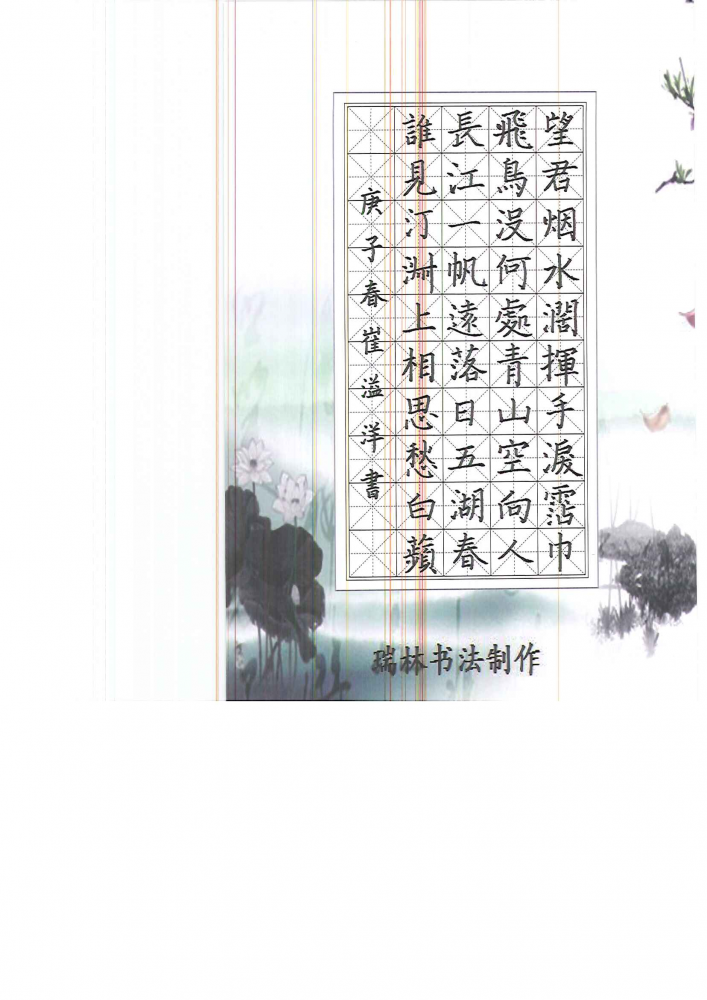 望君烟水濶揮手淚霑巾
飛鳥没何處青山空向人
長江一帆遠落日五湖春
誰見汀洲上相思愁白蘋
庚子春崔溢洋書
瑞林书法制作